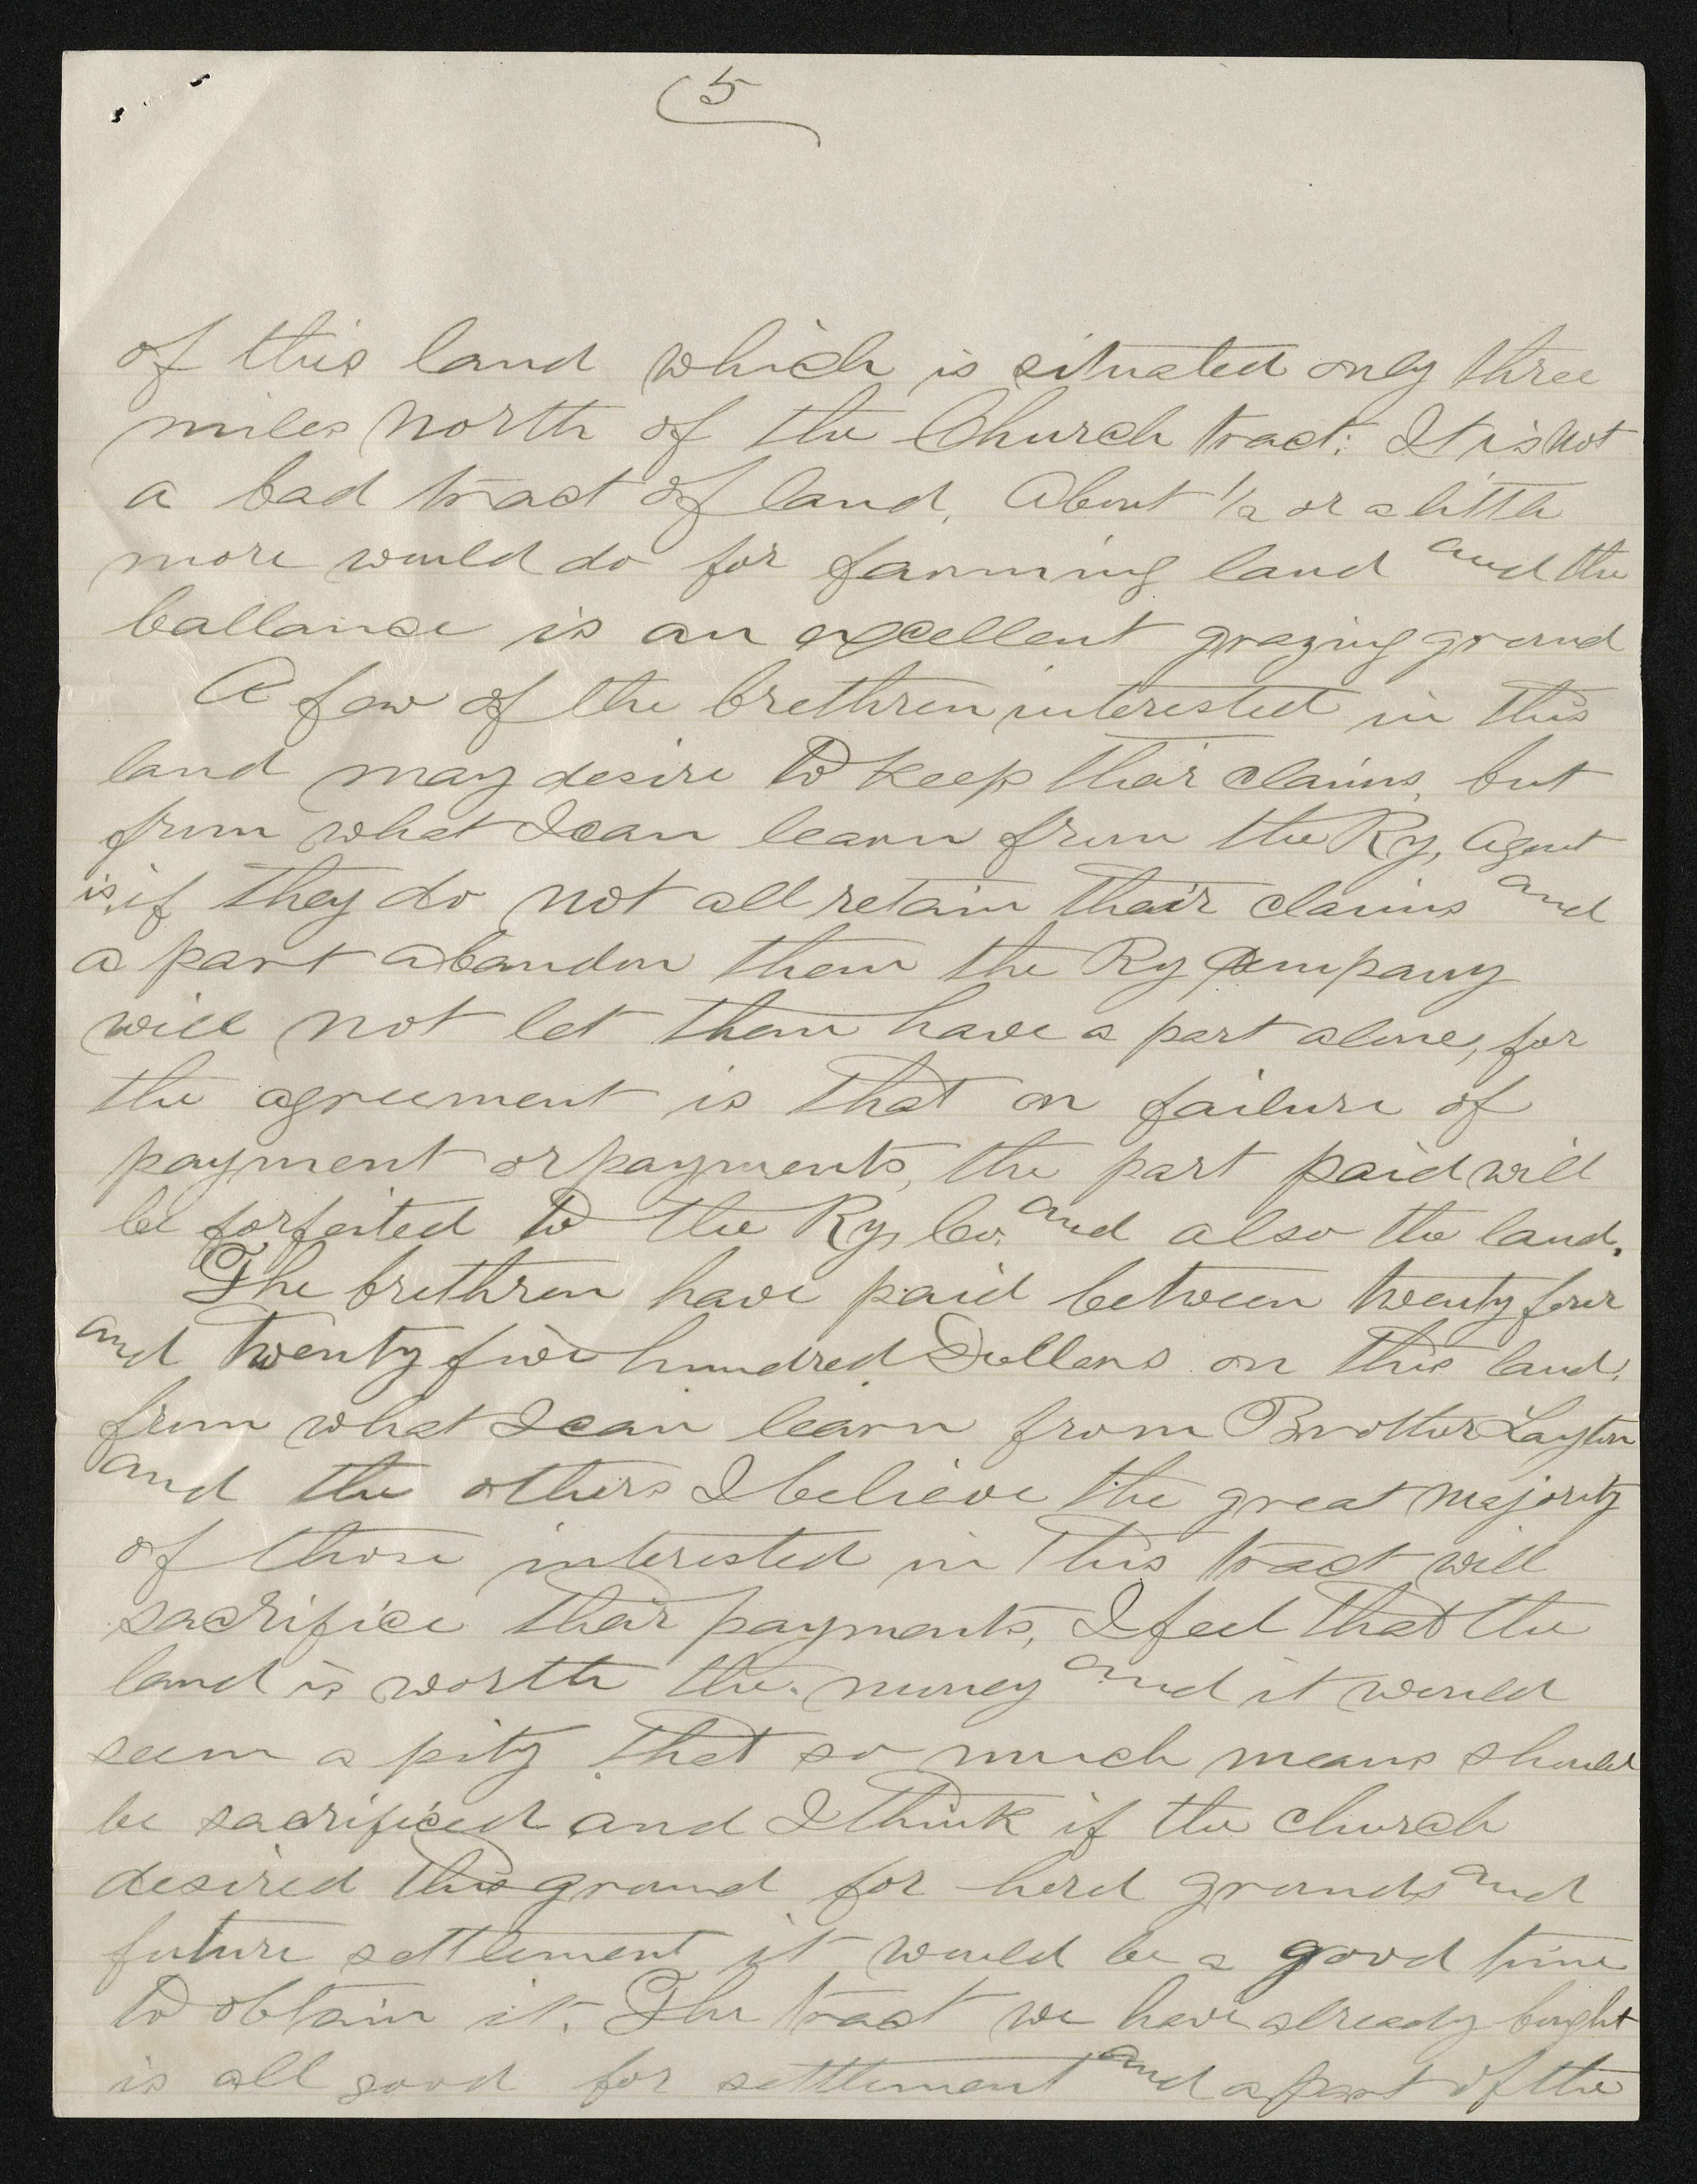 5
of this land which is situated only three
miles north of the Church tract: It is not
a bad tract of land. About 1/2 or a little
more would do for farming land and the
ballance is an excellent grazing ground
A few of the brethren interested in this
land may desire to keep their claims, but
from what I can learn from the Ry, Agent
is, if they do not all retain their claims and
a part abandon them the Ry Company
will not let them have a part alone, for
the agreement is that on failure of
payment or payments, the part paid will
be forfeited to the Ry, Co. and also the land.
The brethren have paid between twenty four
and twenty five hundred Dollars on this land.
from what I can learn from Brother Layton
and the others I believe the great majority
of those interested in this tract will
sacrifice their payments, I feel that the
land is worth the money and it would
seem a pity that so much means should
be sacrificed and I think if the church
desired this ground for herd grounds and
future settlement it would be a good time
to obtain it. The tract we have already bought
is all good for settlement and a part of the